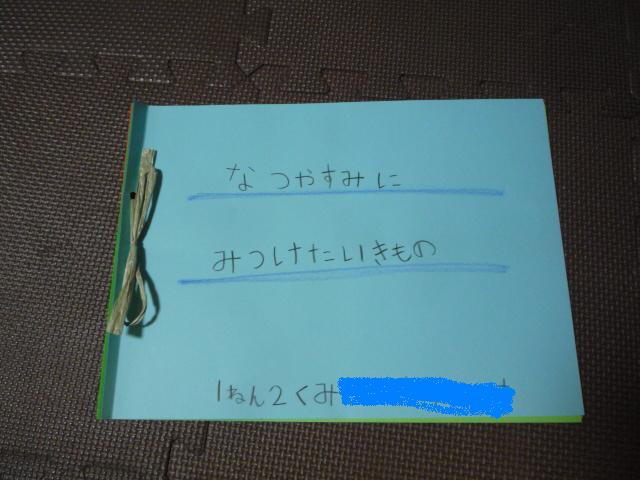 なつやすみに
みつけたいきもの
1ねん2くみ